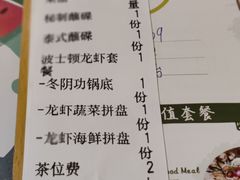 量
秘制蘸碟 1
份
泰式蘸碟 1
份
波士顿龙虾套 1
餐 份
-冬阴功锅底 1
份
-龙虾蔬菜拼盘 1
份
-龙虾海鲜拼盘 1
份
茶位费 2
值套餐
ood Meal